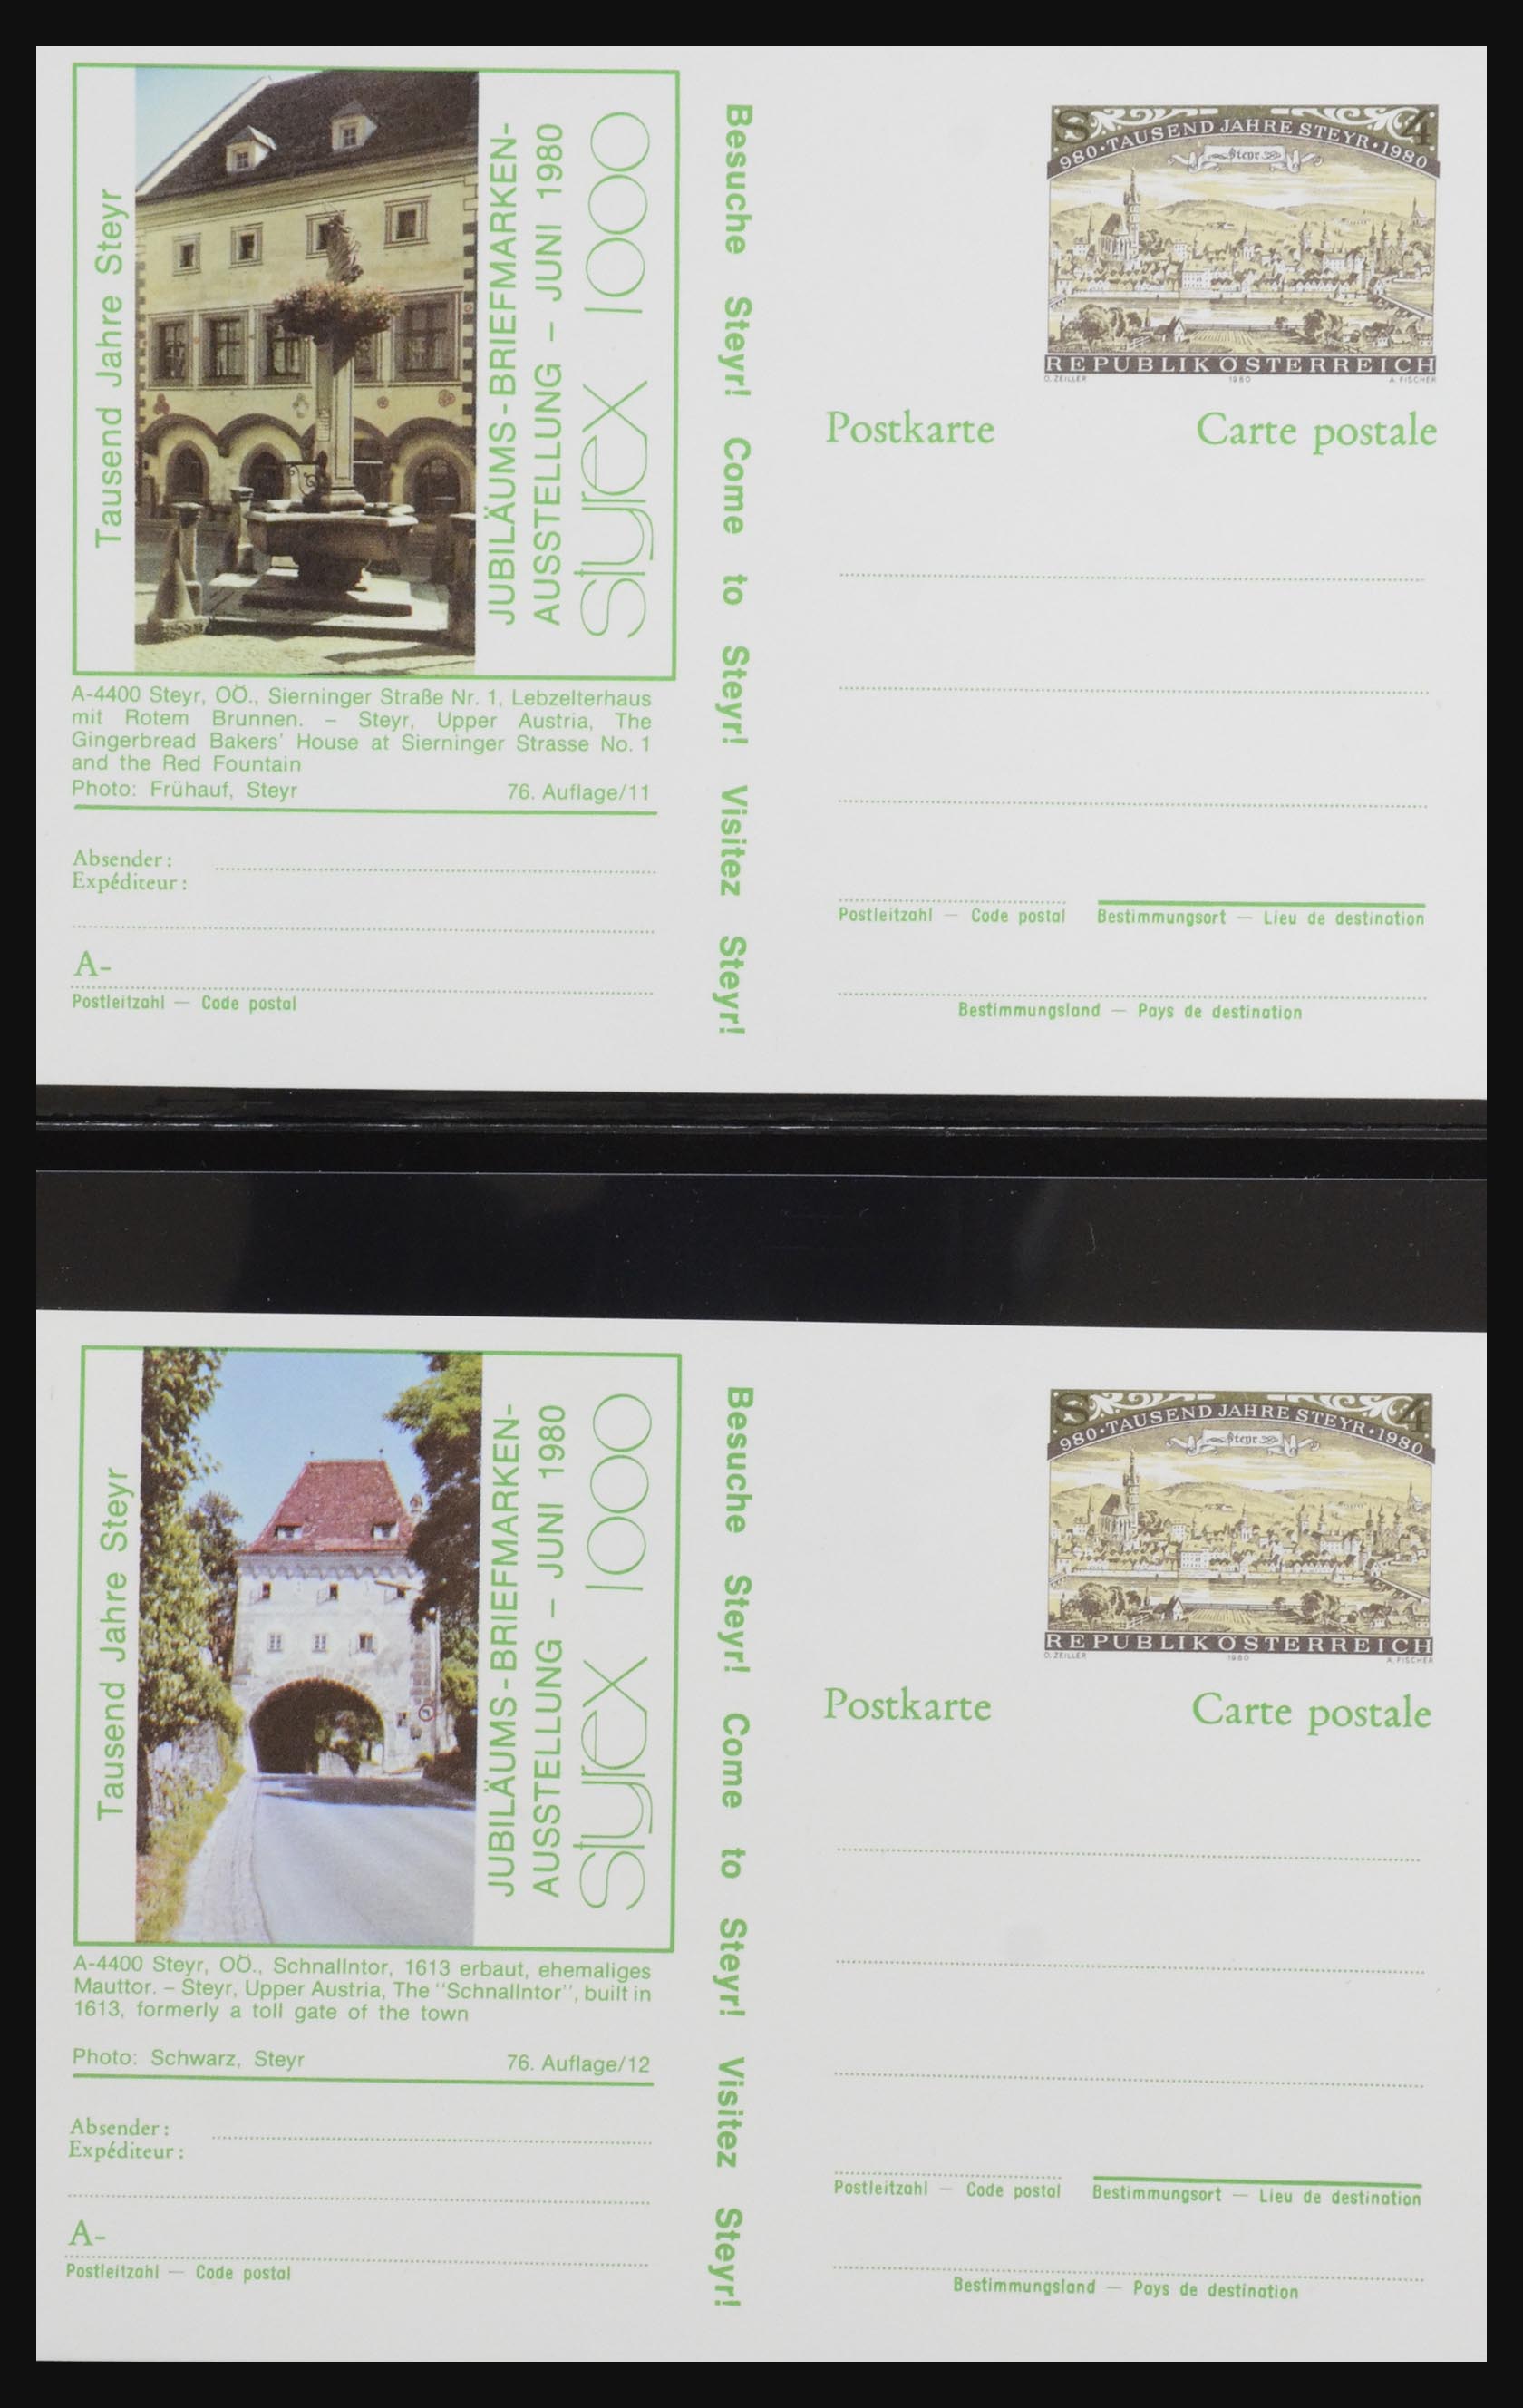 Tausend Jahre Steyr
JUBILÄUMS-BRIEFMARKEN-
AUSSTELLUNG – JUNI 1980
styrex 1000
A-4400 Steyr, OÖ., Sierninger Straße Nr. 1, Lebzelterhaus
mit Rotem Brunnen. – Steyr, Upper Austria, The
Gingerbread Bakers' House at Sierninger Strasse No. 1
and the Red Fountain
Photo: Frühauf, Steyr 76. Auflage/11
Absender:
Expéditeur:
A-
Postleitzahl — Code postal
Besuche Steyr! Come to Steyr! Visitez Steyr!
S 4
980·TAUSEND JAHRE STEYR·1980
Steyr
REPUBLIK ÖSTERREICH
O. ZEILLER 1980 A. FISCHER
Postkarte Carte postale
Postleitzahl — Code postal Bestimmungsort — Lieu de destination
Bestimmungsland — Pays de destination
Tausend Jahre Steyr
JUBILÄUMS-BRIEFMARKEN-
AUSSTELLUNG – JUNI 1980
styrex 1000
A-4400 Steyr, OÖ., Schnallntor, 1613 erbaut, ehemaliges
Mauttor. – Steyr, Upper Austria, The "Schnallntor", built in
1613, formerly a toll gate of the town
Photo: Schwarz, Steyr 76. Auflage/12
Absender:
Expéditeur:
A-
Postleitzahl — Code postal
Besuche Steyr! Come to Steyr! Visitez Steyr!
S 4
980·TAUSEND JAHRE STEYR·1980
Steyr
REPUBLIK ÖSTERREICH
O. ZEILLER 1980 A. FISCHER
Postkarte Carte postale
Postleitzahl — Code postal Bestimmungsort — Lieu de destination
Bestimmungsland — Pays de destination